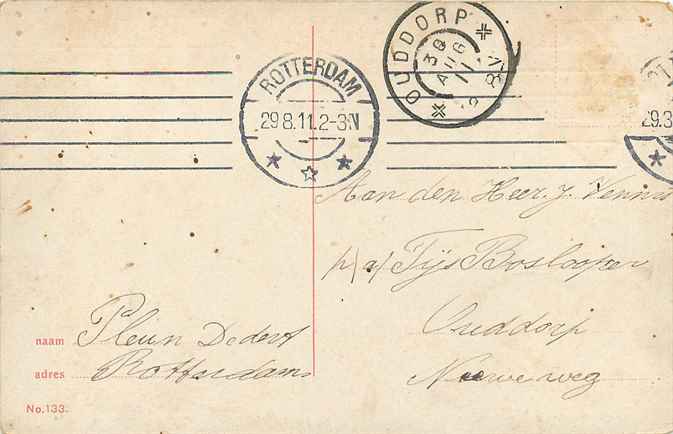 ROTTERDAM
29 8.11.2-3N
OUDDORP
30
AUG
11
Aan den Heer J. Vennis
p/a/ Tijs Boslooper
Ouddorp
Nieuweweg
naam Pleun Dedert
adres Rotterdam
No.133.